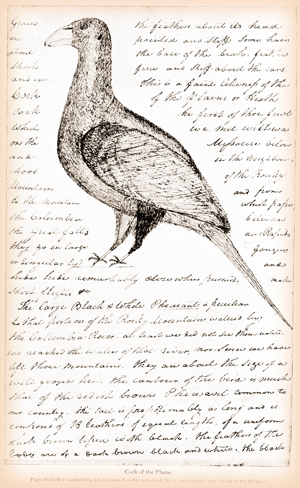 the feathers about its head
pointed and stiff Some hairs
the base of the beak. feathers
fine and stiff about the ears.
This is a faint likeness of the
Cock of the Plains or Heath
Cock the first of those fowls
which we met with was
on the Missouri below
and in the neighbourhood
of the Rocky
Mountains and from
to the Mountain which pass
the Columbia between
the Great falls and Rapids
they go in large Gangues
or Singular and
hide hide remarkably close when pursued,
Short flights
The large Black & White Pheasant is peculiar
to that portion of the Rocky Mountains watered by
the Columbia River. at least we did not see them untill
we reached the waters of that river, nor Since we have
left those mountains. they are about the Size of a
well grown hen. the contour of the bird is much
that of the redish brown Pheasant common to
our country. the tail is proportionably as long and is
composed of 18 feathers of equal length, of a uniform
dark brown tiped with black. the feathers of the
body are of a dark brown black and white. the black
Cock of the Plains
Page of Clark's handwriting from Clark-Voorhis note book No. 2, with sketch of a "Cock of the Plains."